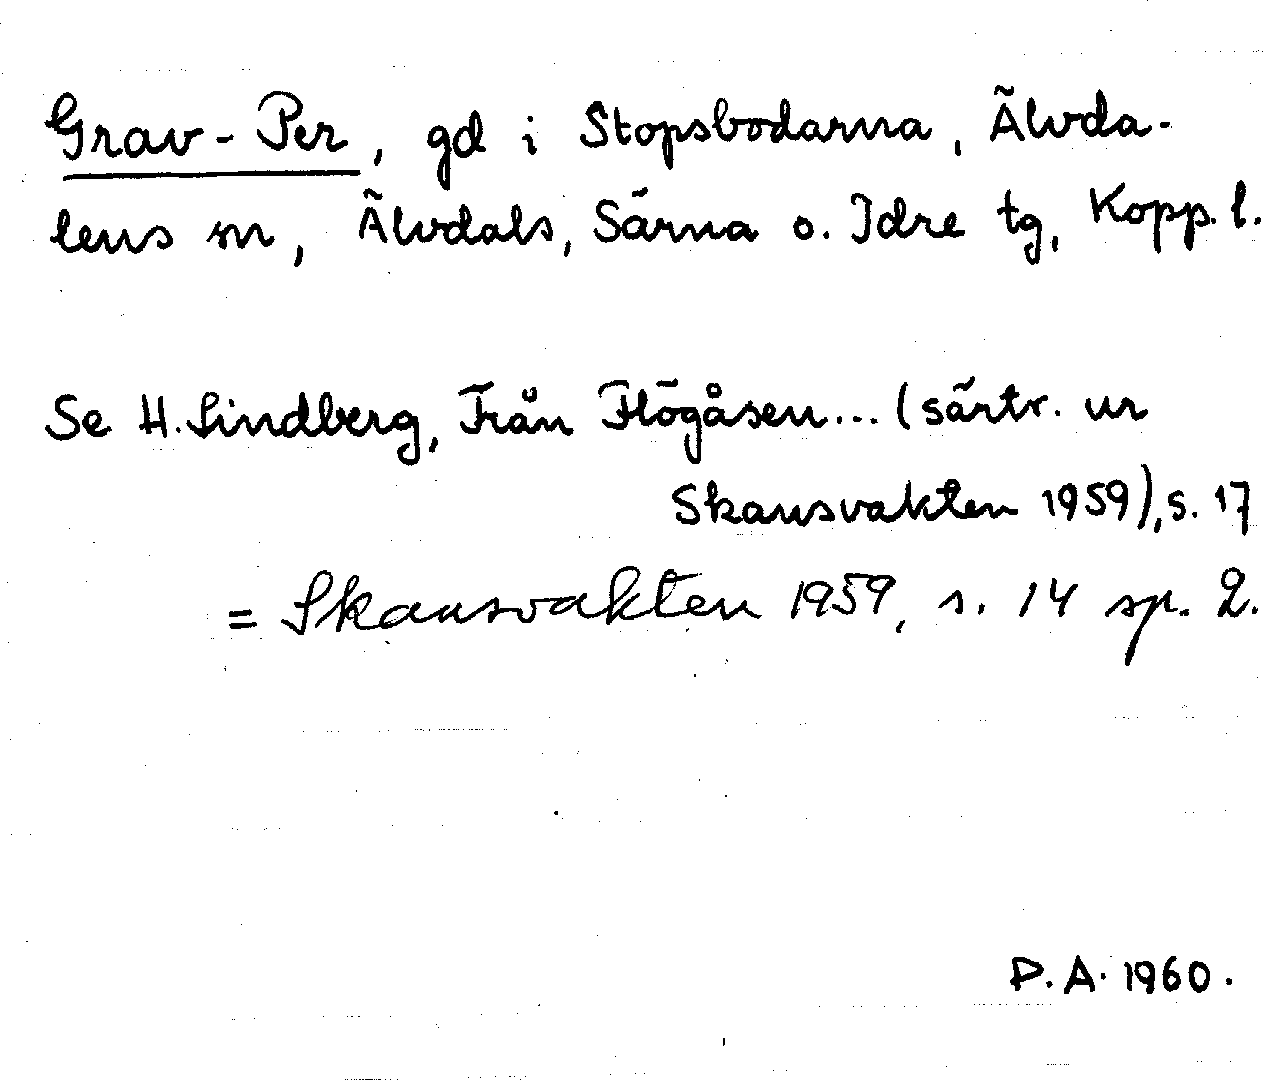 Grav-Per, gd i Stopsbodarna, Älvda-
lens sn, Älvdals, Särna o. Idre tg, Kopp. l.
Se H. Lindberg, Från Flögåsen... (särtr. ur
Skansvakten 1959), s. 17
= Skansvakten 1959, s. 14 sp. 2.
P.A. 1960.